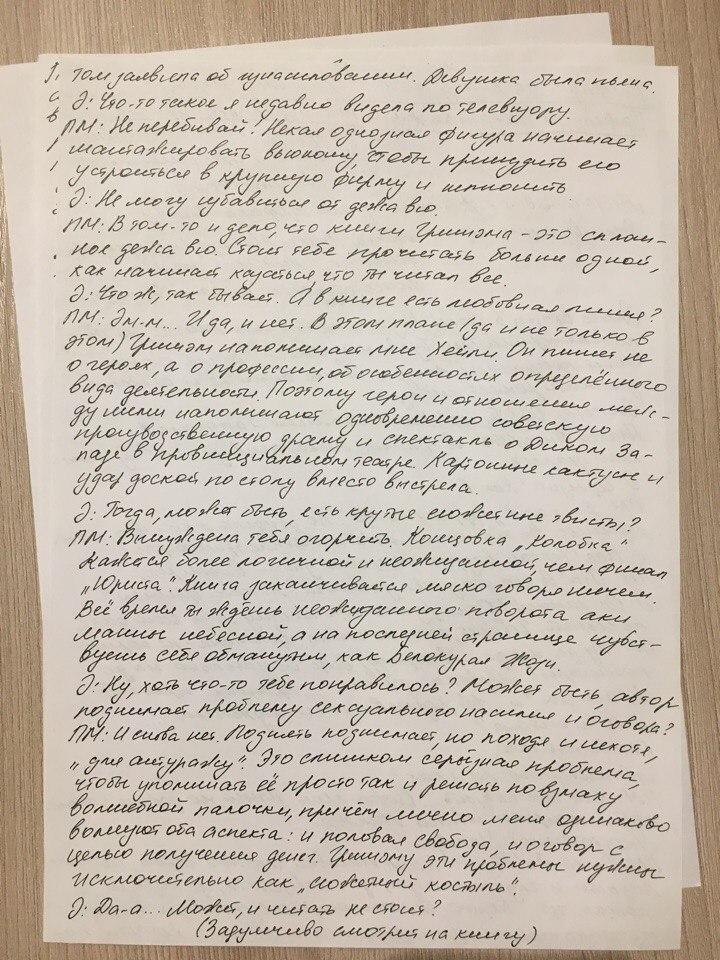 том заявила об изнасиловании. Девушка была пьяна.
Э: Что-то такое я недавно видела по телевизору.
ПМ: Не перебивай! Некая одиозная фигура начинает
шантажировать вьюношу, чтобы принудить его
устроиться в крупную фирму и шпионить
Э: Не могу избавиться от дежа вю.
ПМ: В том-то и дело, что книги Гришэма - это сплош-
ное дежа вю. Стоит тебе прочитать больше одной,
как начинает казаться, что ты читал все.
Э: Что ж, так бывает. А в книге есть любовная линия?
ПМ: Эм-м... И да, и нет. В этом плане (да и не только в
этом) Гришэм напоминает мне Хейли. Он пишет не
о героях, а о профессии, об особенностях определённого
вида деятельности. Поэтому герои и отношения меж-
ду ними напоминают одновременно советскую
производственную драму и спектакль о Диком За-
паде в провинциальном театре. Картонные кактусы и
удар доской по столу вместо выстрела.
Э: Тогда, может быть, есть крутые сюжетные твисты?
ПМ: Вынуждена тебя огорчить. Концовка „Колобка"
кажется более логичной и неожиданной, чем финал
„Юриста". Книга заканчивается мягко говоря ничем.
Всё время ты ждёшь неожиданного поворота аки
манны небесной, а на последней странице чувст-
вуешь себя обманутым, как Белокурая Жози.
Э: Ну, хоть что-то тебе понравилось? Может быть, автор
поднимает проблему сексуального насилия и оговора?
ПМ: И снова нет. Поднять поднимает, но походя и нехотя,
„для антуражу". Это слишком серьёзная проблема,
чтобы упоминать её просто так и решать по взмаху
волшебной палочки, причём лично меня одинаково
волнуют оба аспекта: и половая свобода, и оговор с
целью получения денег. Гришэму эти проблемы нужны
исключительно как „сюжетный костыль".
Э: Да-а... Может, и читать не стоит?
(Задумчиво смотрит на книгу)